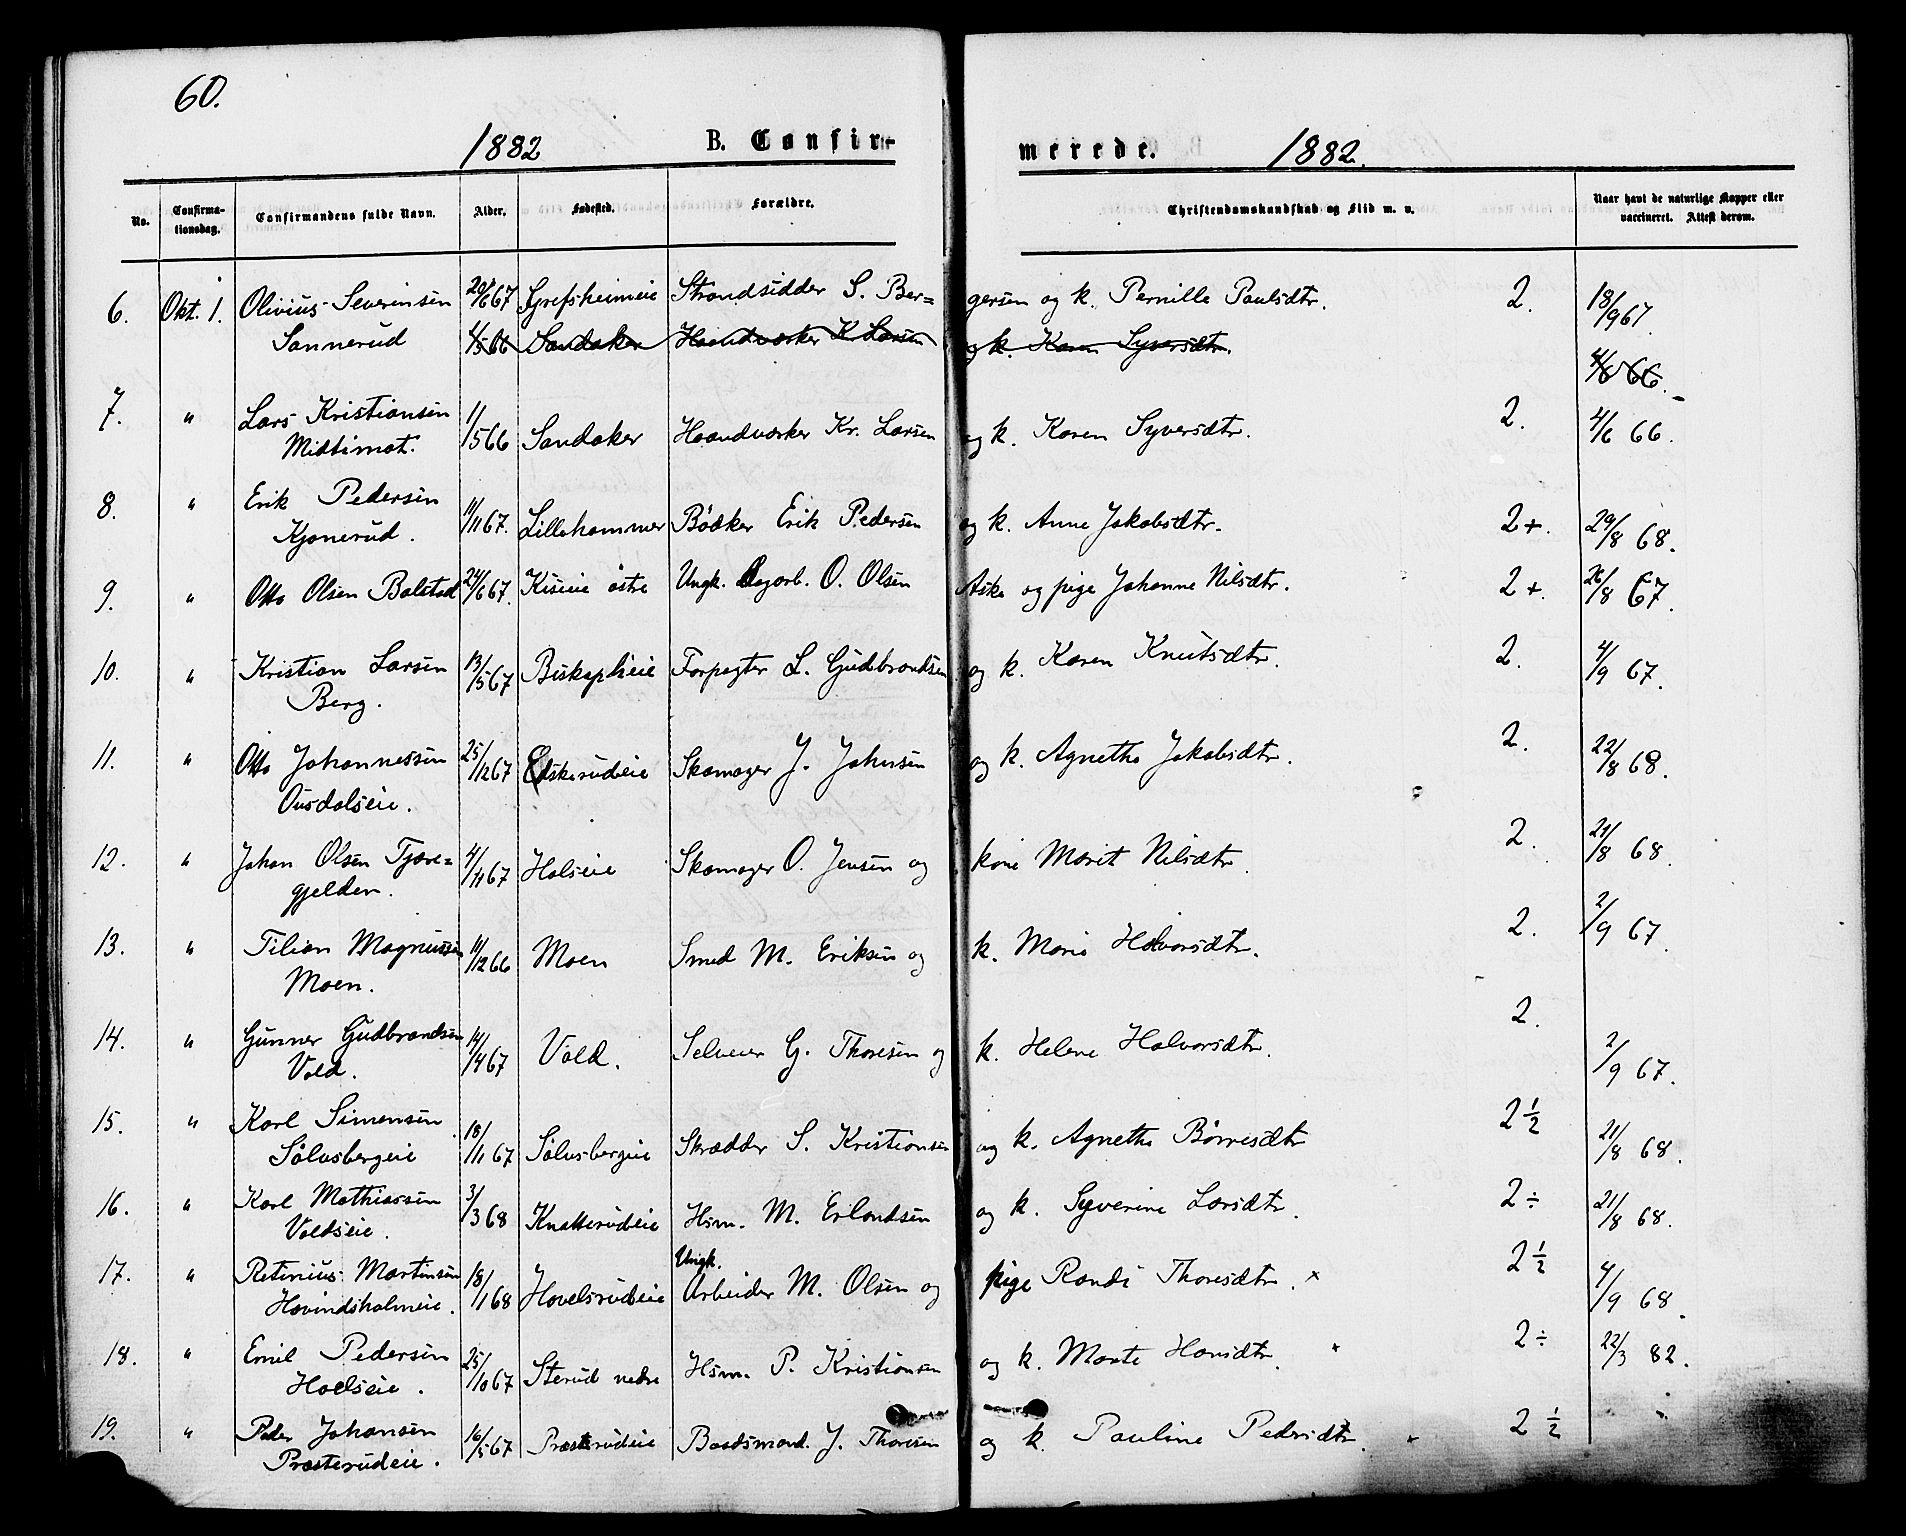 60.
1882 B. Confir-
merede. 1882.
No. Confirma-tionsdag. Confirmandens fulde Navn. Alder. Fødested. Forældre. Christendomskundskab og Flid m. v. Naar havt de naturlige Kopper eller vaccineret. Attest derom.
6. Okt. 1. Olivius Severinsen 20/6 67 Grefsheimeie Strandsidder S. Ber= gersen og k. Pernille Paulsdtr. 2. 18/9 67.
Sannerud 1/5 66 Sandaker Haandværker K. Larsen og k. Karen Syversdtr. 4/6 66.
7. " Lars Kristiansen 1/5 66 Sandaker Haandværker Kr. Larsen og k. Karen Syversdtr. 2. 4/6 66.
Midtimot.
8. " Erik Pedersen 11/11 67. Lillehammer Bødker Erik Pedersen og k. Anne Jakobsdtr. 2+. 29/8 68.
Kjonerud.
9. " Otto Olsen Balstad 24/6 67. Kiseie østre Ungk. Dagarb. O. Olsen Aske og pige Johanne Nilsdtr. 2+. 26/8 67.
10. " Kristian Larsen 13/5 67 Biskoplieie Forpagter L. Gudbrandsen og k. Karen Knutsdtr. 2. 4/9 67.
Berg.
11. " Otto Johannessen 25/12 67 Skomager J. Johnsen og k. Agnethe Jakobsdtr. 2. 22/8 68.
Ousdalseie.
12. " Johan Olsen Tjære= 4/11 67 Holseie Skomager O. Jensen og kone Marit Nilsdtr. 2. 21/8 68.
gjelden.
13. " Tilian Magnussen 11/12 66 Moen Smed M. Eriksen og k. Marie Halvorsdtr. 2. 2/9 67.
Moen.
14. " Gunner Gudbrandsen 14/4 67 Vold. Selveier G. Thoresen og k. Helene Halvorsdtr. 2. 2/9 67.
Vold.
15. " Karl Simensen 18/1 67 Sølvsbergeie Skrædder S. Kristiansen og k. Agnethe Børresdtr 2 1/2 21/8 68.
Sølvsbergeie
16. " Karl Mathiassen 3/3 68 Knatterudeie Hsm. M. Erlandsen og k. Syverine Larsdtr. 2÷ 21/8 68.
Voldseie.
17. " Retinius Martinsen 18/1 68 Hovelsrudeie Ungk. Arbeider M. Olsen og pige Randi Thoresdtr. x 2 1/2 4/9 68.
Hovindsholmeie.
18. " Emil Pedersen 25/10 67 Sterud nedre Hsm. P. Kristiansen og k. Marte Hansdtr. 2÷ 22/3 82.
Hoelseie.
19. " Peder Johansen 16/5 67 Præsterudeie Baadsmand. J. Thoresen og k. Pauline Pedersdtr. 2 1/2
Præsterudeie.